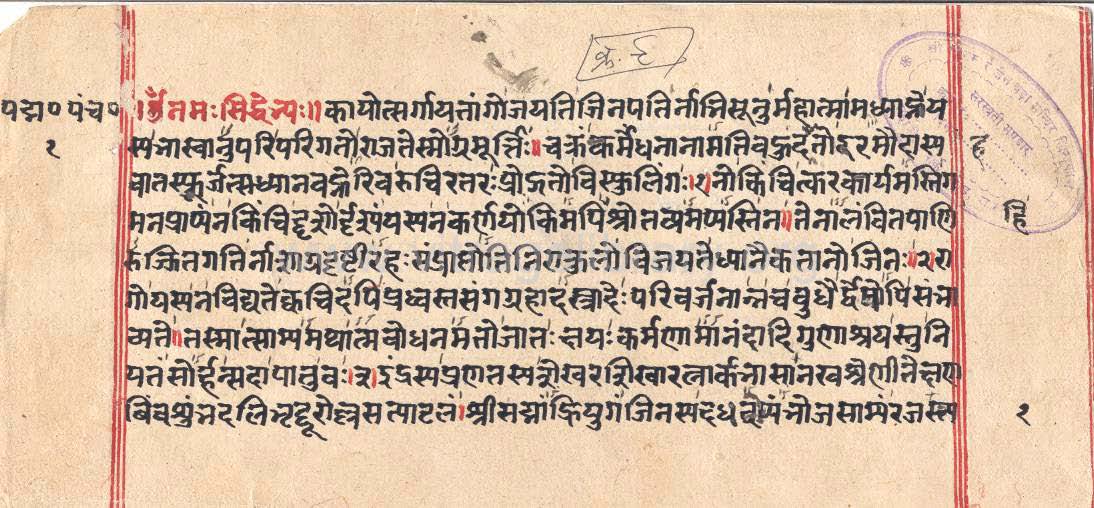 पद्म० पंच०
१
क्र. ६
।ॐ नमः सिद्धेभ्यः॥ कायोत्सर्गायतांगो जयति जिनपतिर्नाभिसूनुर्महात्मा मध्याह्ने य
स्य भास्वानुपरि परिगतो राजते स्मोग्रमूर्त्तिः॥ चक्रं कर्मेंधनानामतिबहु दहतो दूरमौदास्य
वातस्फूर्जत्सध्यानवह्नेरिव रुचिरतरः प्रोद्गतो विस्फुलिंगः।१। नो किंचित्करकार्यमस्ति ग
मनप्राप्यं न किंचिदृशोर्दृश्यं यस्य न कर्णयोः किमपि श्रोतव्यमप्यस्ति न॥ तेनालंबितपाणि
हि
रुज्झितगतिर्नासाग्रदृष्टी रहः संप्राप्तोतिनिराकुलो विजयते ध्यानैकतानो जिनः॥२। रा
गो यस्य न विद्यते क्वचिदपि प्रध्वस्तसंगग्रहादस्त्रादेः परिवर्जनान्न च बुधैर्द्वेषोपि संभा
व्यते॥ तस्मात्साम्यमथात्मबोधनमतो जातः क्षयः कर्मणामानंदादिगुणाश्रयस्तु नि
यतं सोर्हन्सदा पातु वः।३। इंद्रस्य प्रणतस्य शेखरशिखारत्नार्कभासा नखश्रेणीतेक्षण
बिंबशुंभदलिभृद्दूरोल्लसत्पाटलं। श्रीसद्मांह्रियुगं जिनस्य दधदप्यंभोजसाम्यं रजस्त्य
१